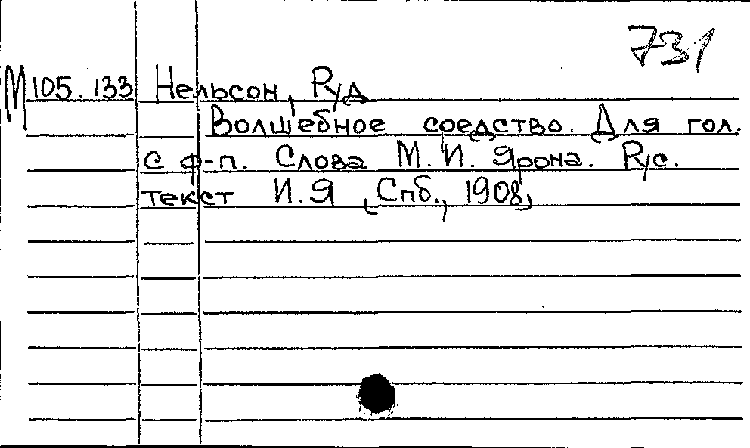 731
М 105.133 Нельсон, Руд
Волшебное средство. Для гол.
с ф-п. Слова М. И. Ярона. Рус.
текст И. Я [Спб., 1908]